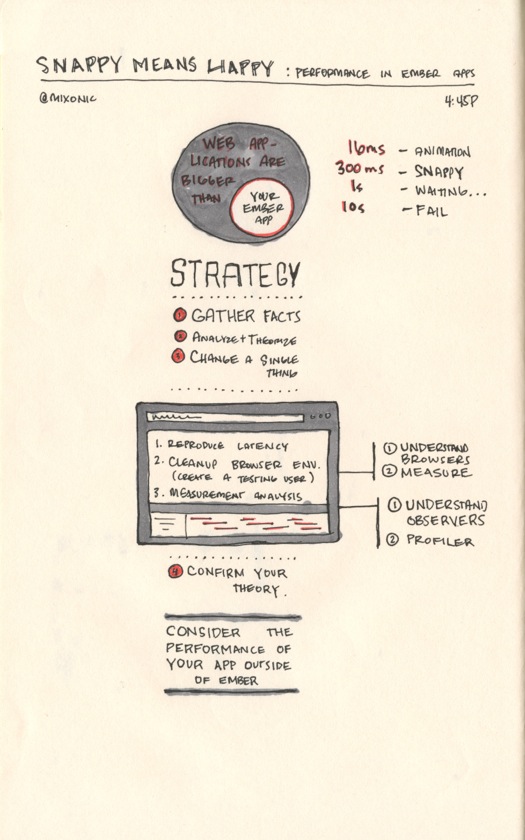 SNAPPY MEANS HAPPY : PERFORMANCE IN EMBER APPS
@MIXONIC
4:45P
WEB APP-
LICATIONS ARE
BIGGER
THAN
YOUR
EMBER
APP
16ms – ANIMATION
300ms – SNAPPY
1s – WAITING...
10s – FAIL
STRATEGY
1 GATHER FACTS
2 ANALYZE + THEORIZE
3 CHANGE A SINGLE
THING
1. REPRODUCE LATENCY
2. CLEANUP BROWSER ENV.
(CREATE A TESTING USER)
3. MEASUREMENT ANALYSIS
1 UNDERSTAND
BROWSERS
2 MEASURE
1 UNDERSTAND
OBSERVERS
2 PROFILER
4 CONFIRM YOUR
THEORY.
CONSIDER THE
PERFORMANCE OF
YOUR APP OUTSIDE
OF EMBER